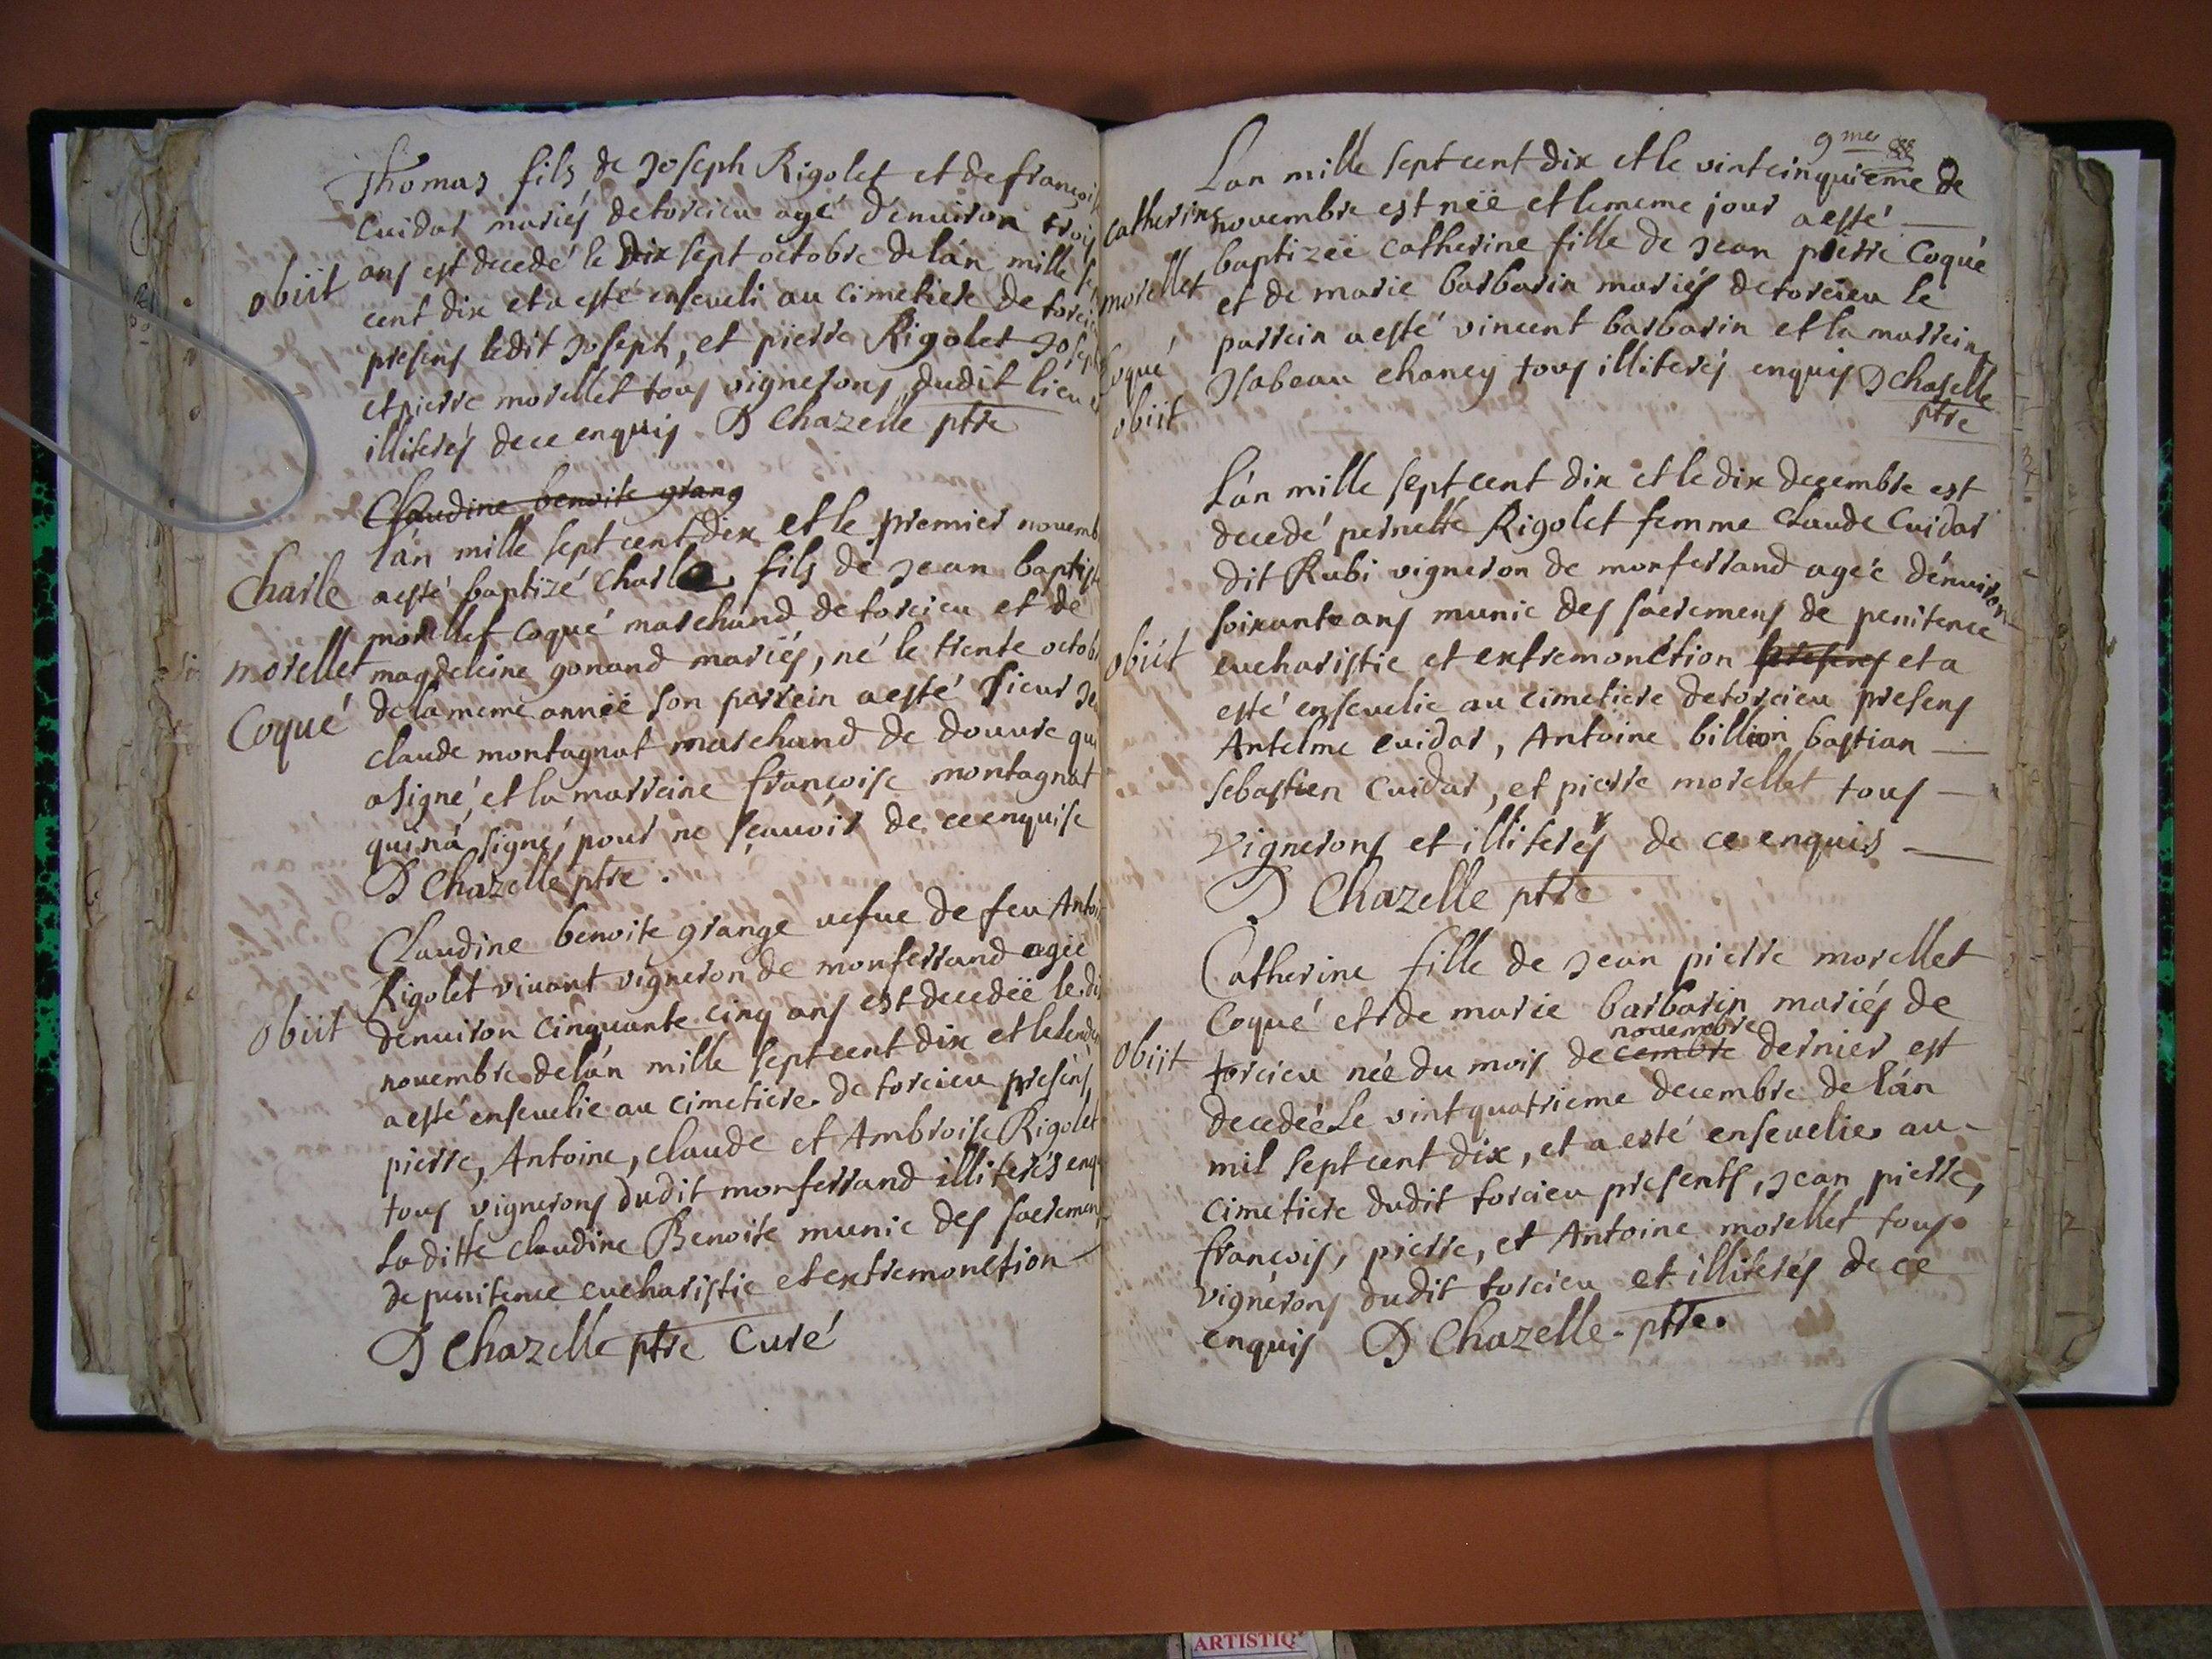 Thomas fils de Joseph Rigolet et de françoise
Cuidat mariés de torcieu agé dénuiron trois
ans est decedé le dix sept octobre de lán mille se
obiit
cent dix et a esté enseueli au cimetiere de torcie
presens ledit Joseph, et pierre Rigolet Joseph
et pierre morellet tous vignerons dudit lieu et
illiterés dece enquis. D Chazelle ptre
Claudine benoite grang
lán mille sept cent dix et le premier nouemb
Charle
aesté baptizé Charle fils de Jean baptiste
morellet coqué marchand de torcieu et de
morellet
magdeleine gonand mariés, né le trente octob
Coqué
de la meme année son parrein aesté sieur Je
claude montagnat marchand de douure qui
a signé, et la marreine françoise montagnat
qui ná signé, pour ne sçauoir de ce enquise
D Chazelle ptre.
Claudine benoite grange uefue de feu Antoi
Rigolet viuant vigneron de monferrand ageé
obiit
denuiron cinquante cinq ans est decedeë le di
nouembre de lán mille sept cent dix et le lende
aesté enseuelie au cimetiere de torcieu presens
pierre, Antoine, claude et Ambroise Rigolet
tous vignerons dudit monferrand illiterés enq
la ditte claudine Benoite munie des sacremens
de penitence eucharistie et extremonction
D Chazelle ptre Curé
9mes 88
Lan mille sept cent dix et le vint cinquieme de
catherine
nouembre est néé et le meme jour aesté
baptizeë catherine fille de Jean pierre Coqué
morellet
et de marie barbarin mariés de torcieu le
parrein aesté vincent barbarin et la marreine
Coqué
Isabeau chaney tous illiterés enquis D chaselle
obiit
ptre
Lán mille sept cent dix et le dix decembre est
decedé pernette Rigolet femme Claude Cuidat
dit Rubi vigneron de monferrand agée dénuiron
soixante ans munie des sacremens de penitence
obiit
eucharistie et extremonction presens et a
esté enseuelie au cimetiere de torcieu presens
Antelme cuidat, Antoine billion bastian
sebastien Cuidat, et pierre morellet tous
vignerons et illiterés de ce enquis
D Chazelle ptre
Catherine fille de Jean pierre morellet
Coqué et de marie barbarin mariés de
nouembre
obiit
torcieu née du mois de cembre dernier est
decedée Le vint quatrieme decembre de lán
mil sept cent dix, et a esté enseuelie au
cimetiere dudit torcieu presents, Jean pierre,
francois, pierre, et Antoine morellet tous
vignerons dudit torcieu et illiterés de ce
enquis D Chazelle - ptre.
ARTISTIQ